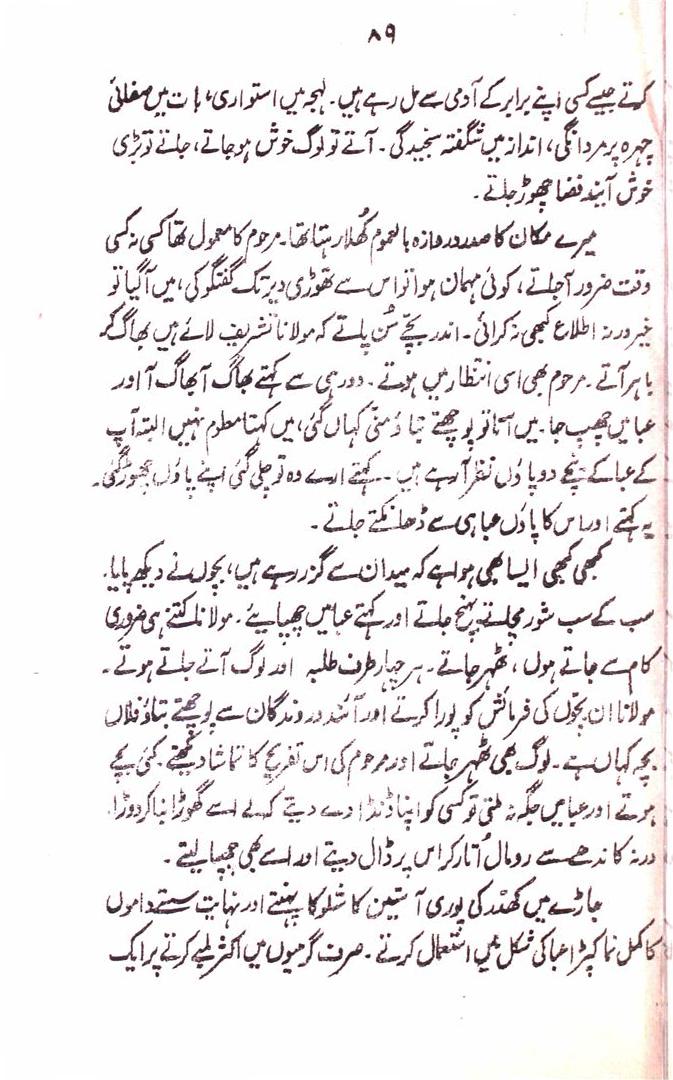 ۸۹
کرتے جیسے کسی اپنے برابر کے آدمی سے مل رہے ہیں۔ لہجہ میں استواری، بات میں صفائی
چہرہ پر مردانگی، انداز میں شگفتہ سنجیدگی۔ آتے تو لوگ خوش ہو جاتے، جاتے تو بڑی
خوش آیند فضا چھوڑ جاتے۔
میرے مکان کا صدر دروازہ بالعموم کُھلا رہتا تھا۔ مرحوم کا معمول تھا کسی نہ کسی
وقت ضرور آجاتے، کوئی مہمان ہوا تو اس سے تھوڑی دیر تک گفتگو کی، میں آگیا تو
خیر ورنہ اطلاع کبھی نہ کرائی۔ اندر بچّے سُن پاتے کہ مولانا تشریف لائے ہیں بھاگ کر
باہر آتے۔ مرحوم بھی اسی انتظار میں ہوتے۔ دور ہی سے کہتے بھاگ آ بھاگ آ اور
عبا میں چھپ جا۔ میں آتا تو پوچھتے بتاؤ منّی کہاں گئی، میں کہتا معلوم نہیں البتہ آپ
کے عبا کے نیچے دو پاؤں نظر آرہے ہیں۔ کہتے ارے وہ تو چلی گئی اپنے پاؤں چھوڑ گئی۔
یہ کہتے اور اس کا پاؤں عبا ہی سے ڈھانکتے جاتے۔
کبھی کبھی ایسا بھی ہوا ہے کہ میدان سے گزر رہے ہیں، بچّوں نے دیکھ پایا۔
سب کے سب شور مچاتے پہنچ جاتے اور کہتے عبا میں چھپایئے۔ مولانا کتنے ہی ضروری
کام سے جاتے ہوں، ٹھہر جاتے۔ ہر چہار طرف طلبہ اور لوگ آتے جاتے ہوتے۔
مولانا ان بچّوں کی فرمائش کو پورا کرتے اور آئند و روندگان سے پوچھتے بتاؤ فلاں
بچہ کہاں ہے۔ لوگ بھی ٹھہر جاتے اور مرحوم کی اس تفریح کا تماشا دیکھتے۔ کئی بچے
ہوتے اور عبا میں جگہ نہ ملتی تو کسی کو اپنا ڈنڈا دے دیتے کہ لے اسے گھوڑا بنا کر دوڑا،
ورنہ کاندھے سے رومال اُتار کر اس پر ڈال دیتے اور اسے بھی چھپا لیتے۔
جاڑے میں کھدّر کی پوری آستین کا شلوکا پہنتے اور نہایت سستے داموں
کا کمل نما کپڑا عبا کی شکل میں استعمال کرتے۔ صرف گرمیوں میں اکثر لمبے کرتے پر ایک